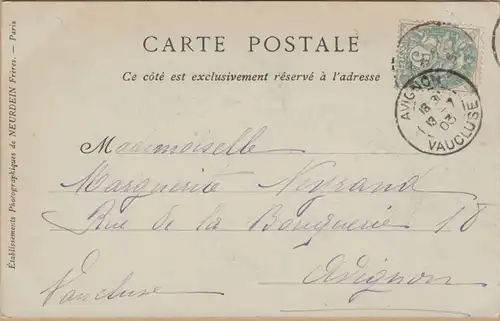 CARTE POSTALE
Ce côté est exclusivement réservé à l'adresse
AVIGNON
VAUCLUSE
03
Mademoiselle
Marguerite Neyrand
Rue de la Bouquerie 18
Avignon
Vaucluse
Établissements Photographiques de NEURDEIN Frères. — Paris